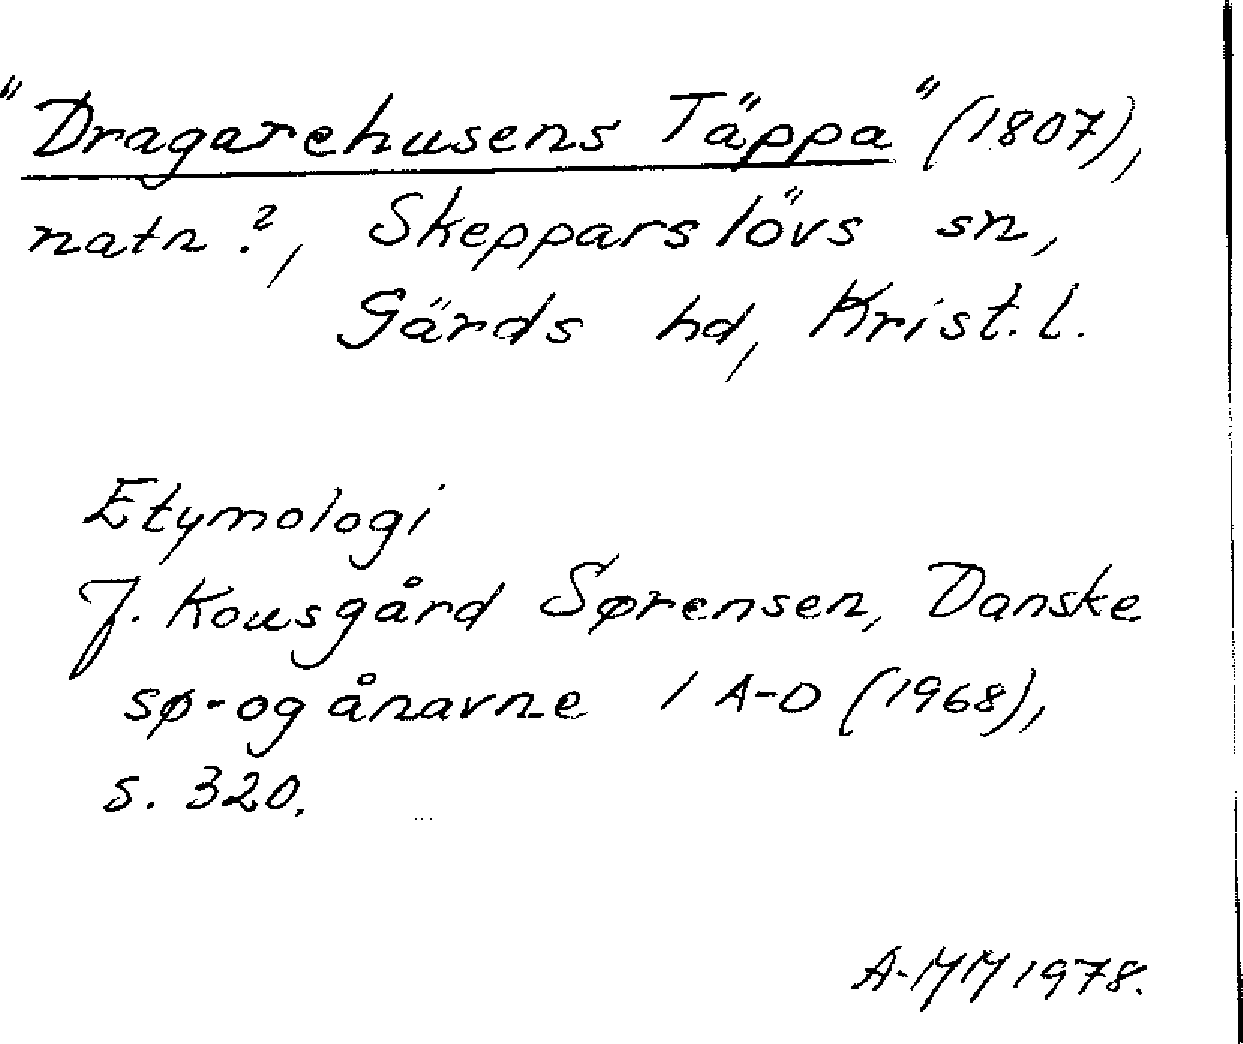 "Dragarehusens Täppa" (1807),
natn.?, Skepparslövs sn,
Gärds hd, Krist. l.
Etymologi
J. Kousgård Sørensen, Danske
sø- og ånavne 1 A-D (1968),
s. 320.
A-MM 1978.